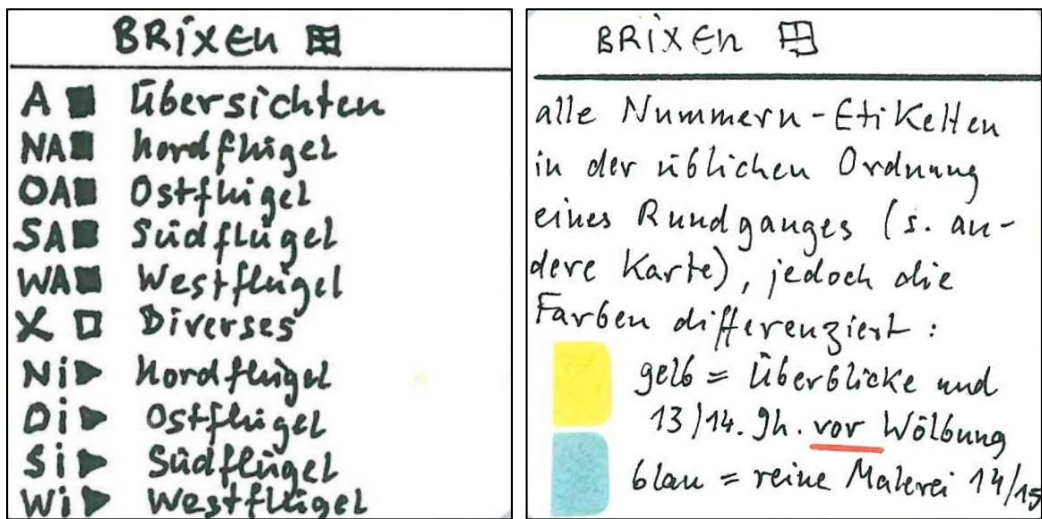 BRiXEN
A Übersichten
NA Nordflügel
OA Ostflügel
SA Südflügel
WA Westflügel
X Diverses
Ni Nordflügel
Oi Ostflügel
Si Südflügel
Wi Westflügel
BRiXEN
alle Nummern-Etiketten
in der üblichen Ordnung
eines Rundganges (s. an-
dere Karte), jedoch die
Farben differenziert:
gelb = Überblicke und
13/14. Jh. vor Wölbung
blau = reine Malerei 14/15